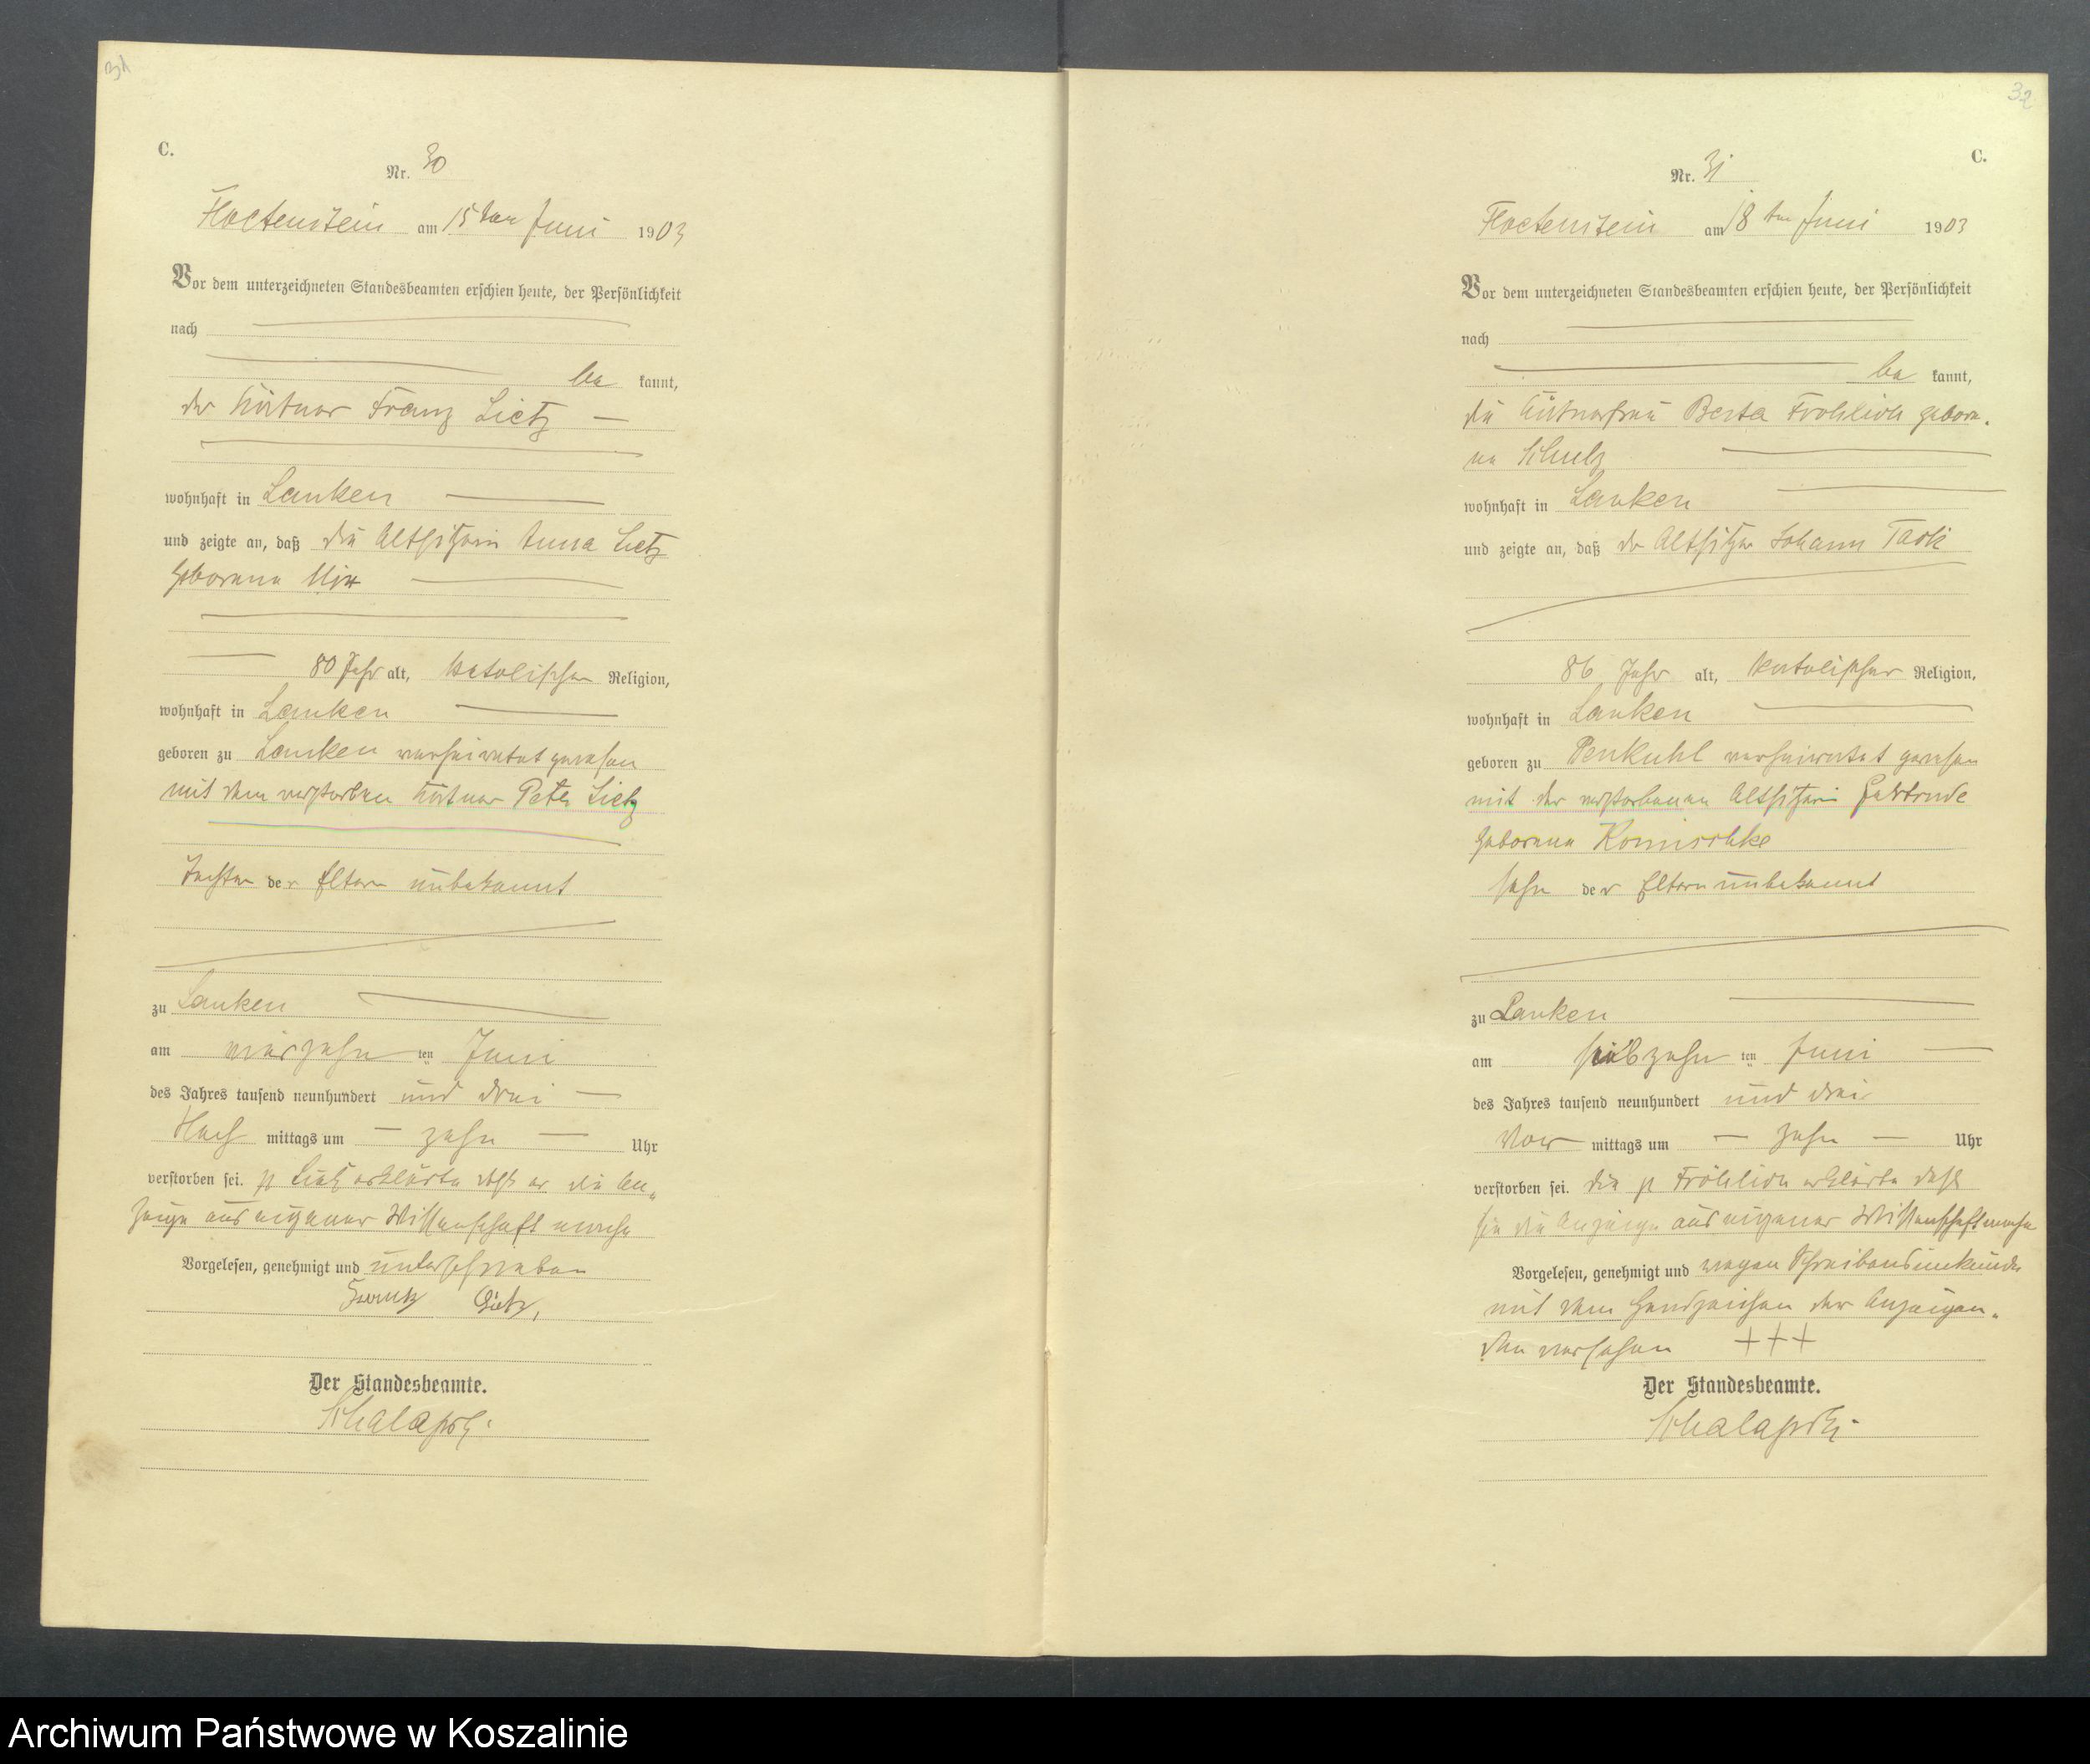 31
C.
Nr. 30
Floetenstein am 15ten Juni 1903
Vor dem unterzeichneten Standesbeamten erschien heute, der Persönlichkeit
nach
be kannt,
der Kätner Franz Lietz
wohnhaft in Lanken
und zeigte an, daß die Altsitzerin Anna Lietz
geborene
80 Jahr alt, katolischer Religion,
wohnhaft in Lanken
geboren zu Lanken verheiratet gewesen
mit dem verstorben Kätner Peter Lietz
Tochter der Eltern unbekannt
zu Lanken
am vierzehn ten Juni
des Jahres tausend neunhundert und drei
Nach mittags um zehn Uhr
verstorben sei. p Lietz erklärte daß er die An„
zeige aus eigener Wissenschaft mache
Vorgelesen, genehmigt und unterschrieben
Frantz Lietz,
Der Standesbeamte.
32
C.
Nr. 31
Floetenstein am 18ten Juni 1903
Vor dem unterzeichneten Standesbeamten erschien heute, der Persönlichkeit
nach
be kannt,
die Kätnerfrau Berta Fröhlich gebore.
ne Schulz
wohnhaft in Lanken
und zeigte an, daß der Altsitzer Johann
86 Jahr alt, katolischer Religion,
wohnhaft in Lanken
geboren zu Penkuhl verheiratet gewesen
mit der verstorbenen Altsitzerin
geborene Konischke
Sohn der Eltern unbekannt
zu Lanken
am siebzehn ten Juni
des Jahres tausend neunhundert und drei
Vor mittags um zehn Uhr
verstorben sei. Die p Fröhlich erklärte daß
sie die Anzeige aus eigener Wissenschaft mache
Vorgelesen, genehmigt und wegen Schreibensunkunde
mit dem Handzeichen der Anzeigen„
den versehen +++
Der Standesbeamte.
Archiwum Państwowe w Koszalinie